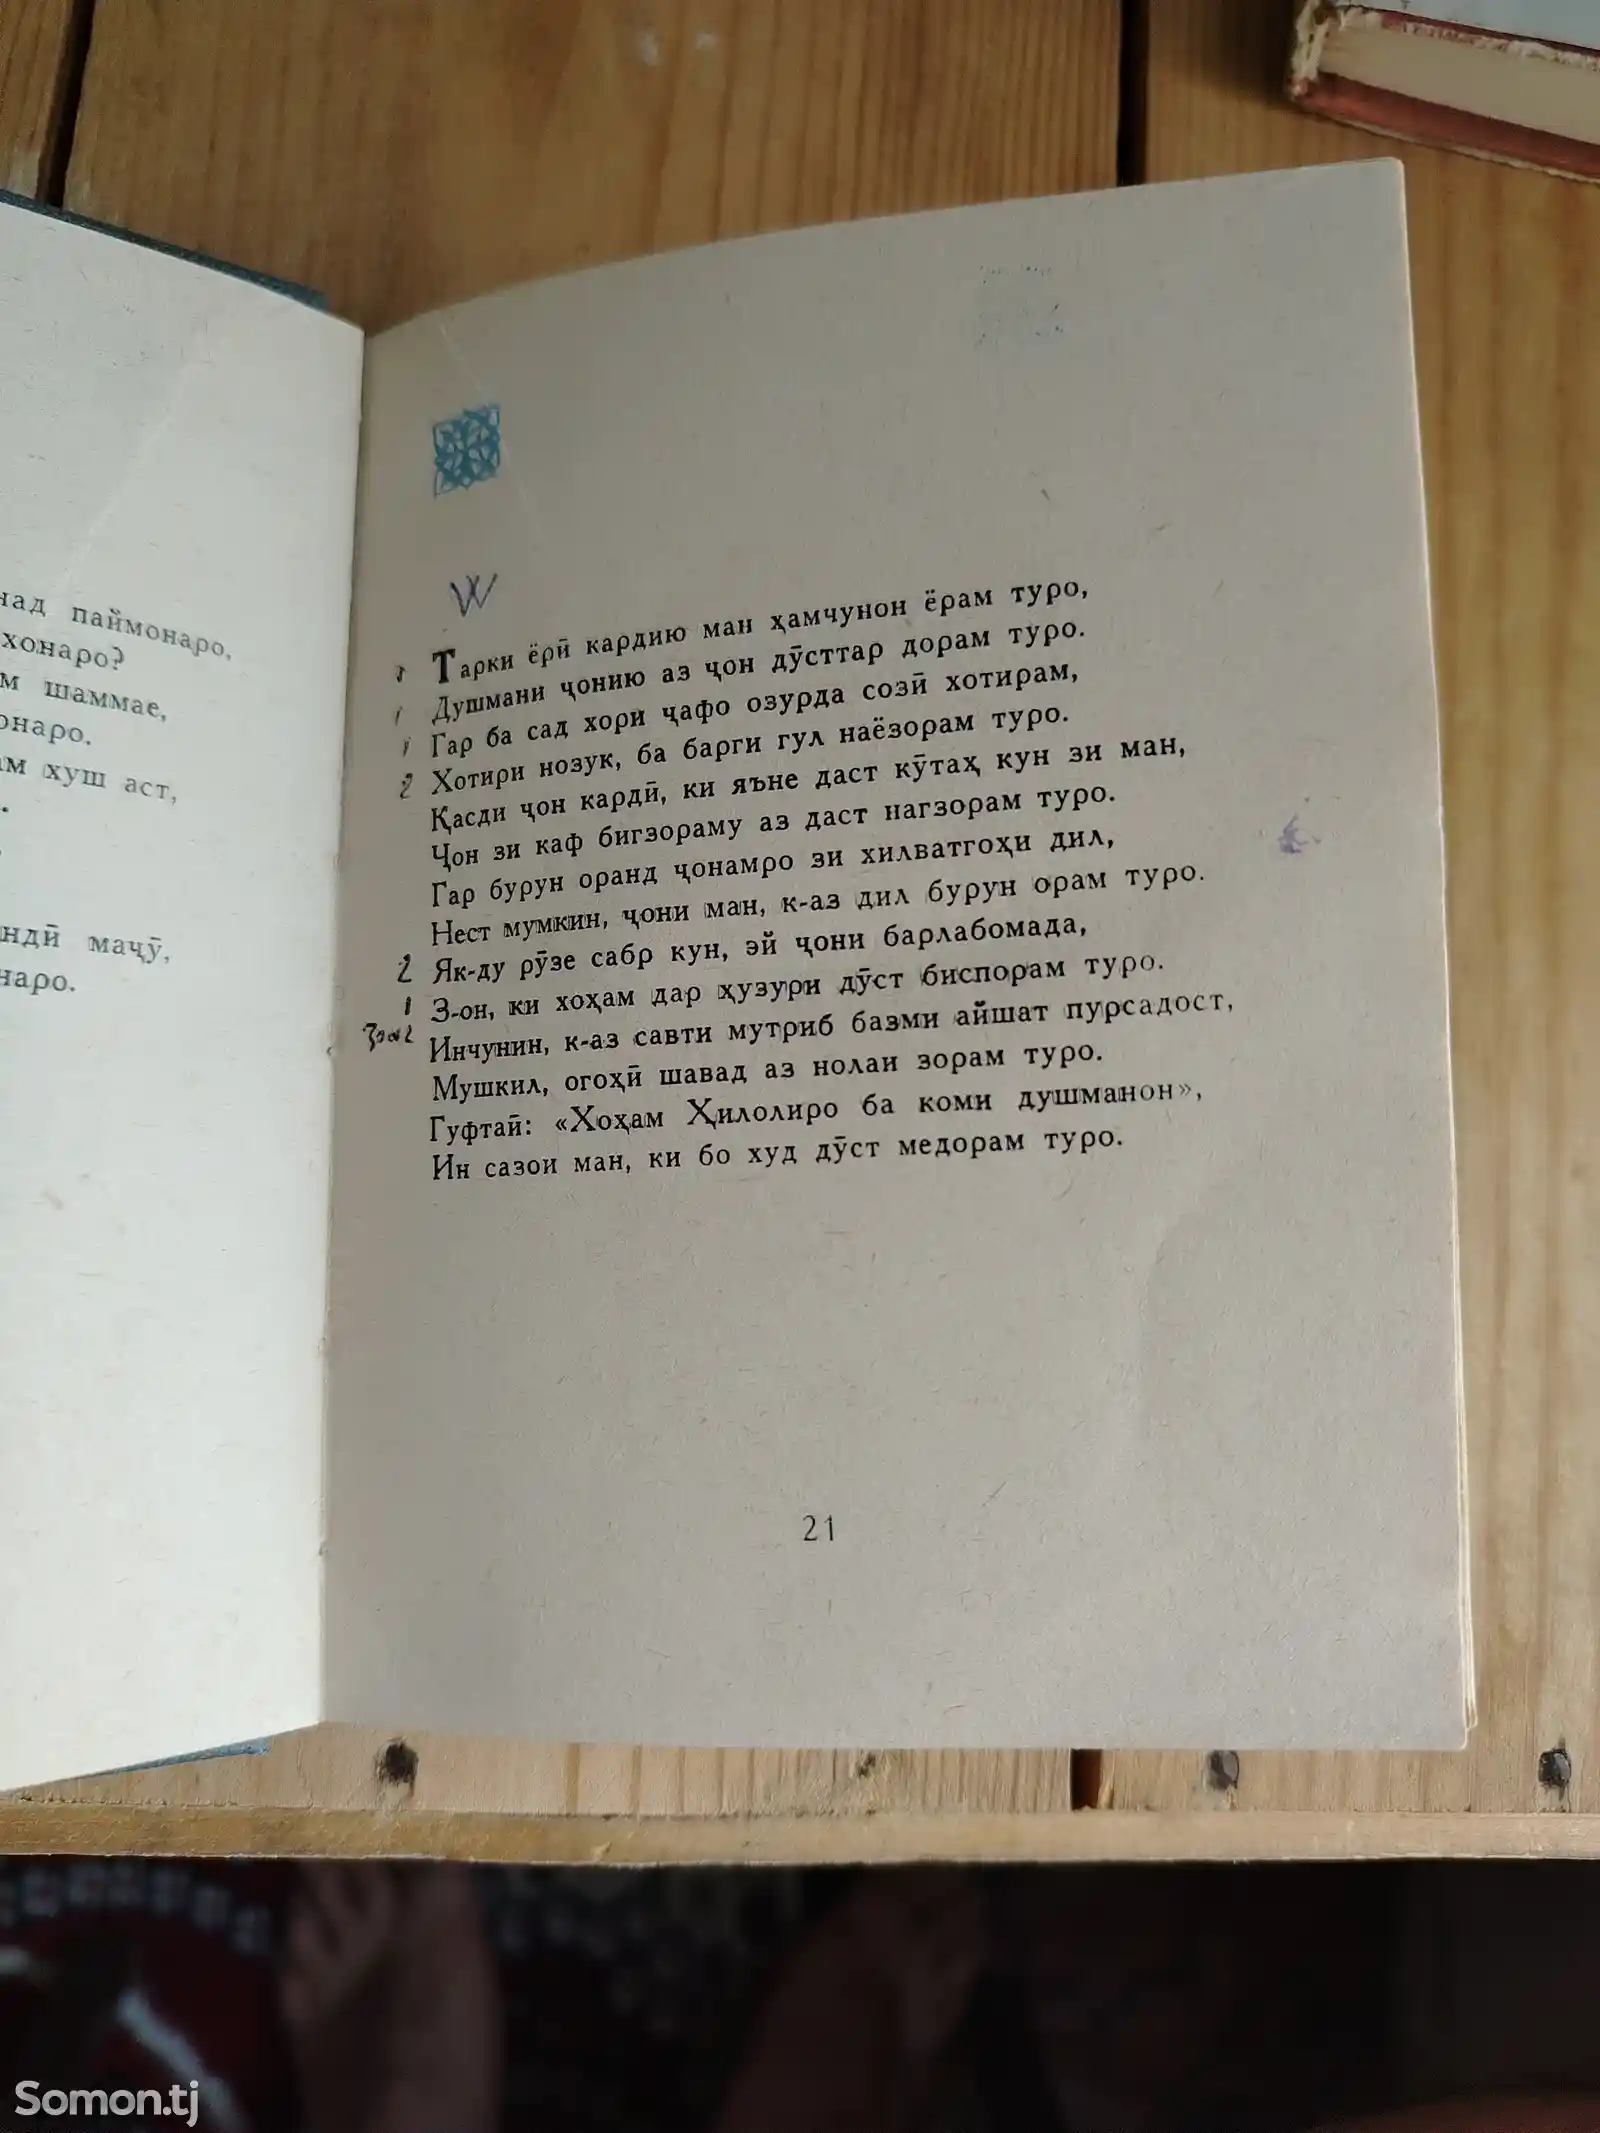 паймонаро,
хонаро?
шаммае,
хуш аст,
маҷӯ,
W
Тарки ёрӣ кардию ман ҳамчунон ёрам туро,
Душмани ҷонию аз ҷон дӯсттар дорам туро.
Гар ба сад хори ҷафо озурда созӣ хотирам,
Хотири нозук, ба барги гул наёзорам туро.
Қасди ҷон кардӣ, ки яъне даст кӯтаҳ кун зи ман,
Ҷон зи каф бигзораму аз даст нагзорам туро.
Гар бурун оранд ҷонамро зи хилватгоҳи дил,
Нест мумкин, ҷони ман, к-аз дил бурун орам туро.
2 Як-ду рӯзе сабр кун, эй ҷони барлабомада,
1 З-он, ки хоҳам дар ҳузури дӯст биспорам туро.
Инчунин, к-аз савти мутриб базми айшат пурсадост,
Мушкил, огоҳӣ шавад аз нолаи зорам туро.
Гуфтаӣ: «Хоҳам Ҳилолиро ба коми душманон»,
Ин сазои ман, ки бо худ дӯст медорам туро.
21
Somon.tj